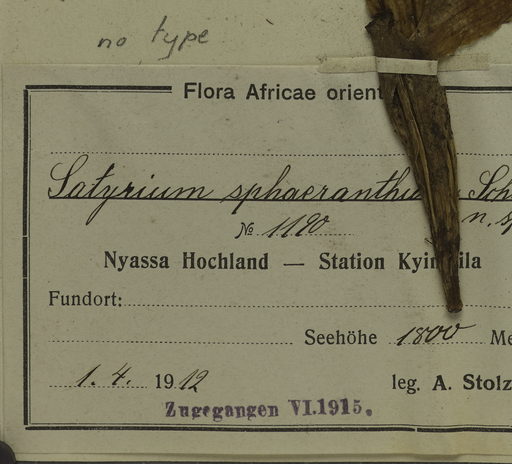 no type
Flora Africae orient
Satyrium sphaeranthu Sch
№ 1190 n. s
Nyassa Hochland — Station Kyim ila
Fundort:
Seehöhe 1800 Me
1. 4. 1912 leg. A. Stolz
Zugegangen VI.1915.